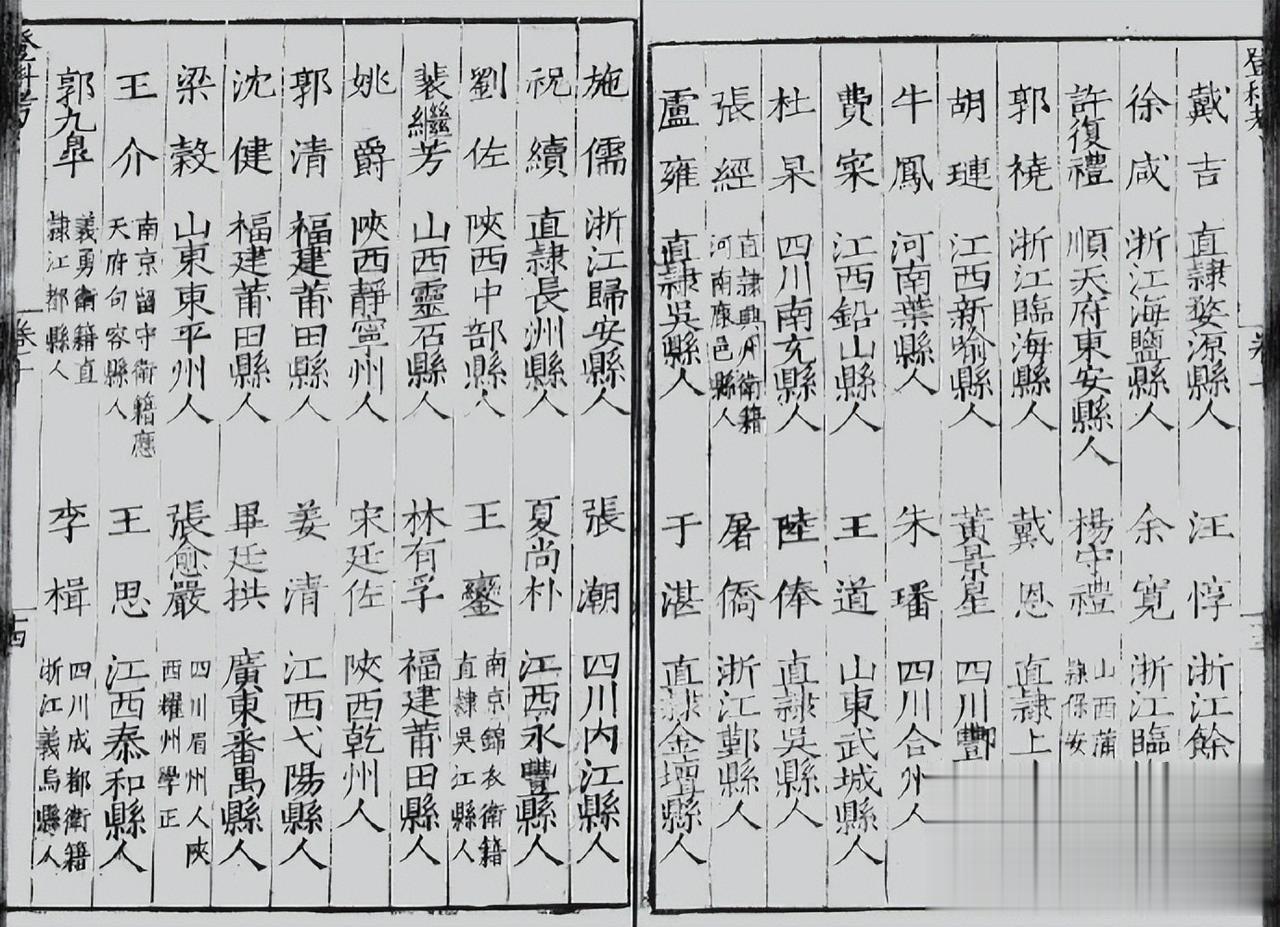 戴吉 直隸婺源縣人 汪惇 浙江餘
徐咸 浙江海鹽縣人 余寬 浙江臨
許復禮 順天府東安縣人 楊守禮 山西蒲 隸保安
郭襓 浙江臨海縣人 戴恩 直隸上
胡璉 江西新喻縣人 黃景星 四川酆
牛鳳 河南葉縣人 朱璠 四川合州人
費寀 江西鉛山縣人 王道 山東武城縣人
杜杲 四川南充縣人 陸俸 直隸吳縣人
張經 直隸興州衛籍 河南鹿邑縣人 屠僑 浙江鄞縣人
盧雍 直隸吳縣人 于湛 直隸金壇縣人
施儒 浙江歸安縣人 張潮 四川内江縣人
祝續 直隸長洲縣人 夏尚朴 江西永豐縣人
劉佐 陝西中部縣人 王鑾 南京錦衣衛籍 直隸吳江縣人
裴繼芳 山西靈石縣人 林有孚 福建莆田縣人
姚爵 陝西靜寧州人 宋廷佐 陝西乾州人
郭清 福建莆田縣人 姜清 江西弋陽縣人
沈健 福建莆田縣人 畢廷拱 廣東番禺縣人
梁縠 山東東平州人 張愈嚴 四川眉州人陝 西耀州學正
王介 南京留守衛籍應 天府句容縣人 王思 江西泰和縣人
郭九臯 義勇衛籍直 隸江都縣人 李楫 四川成都衛籍 浙江義烏縣人